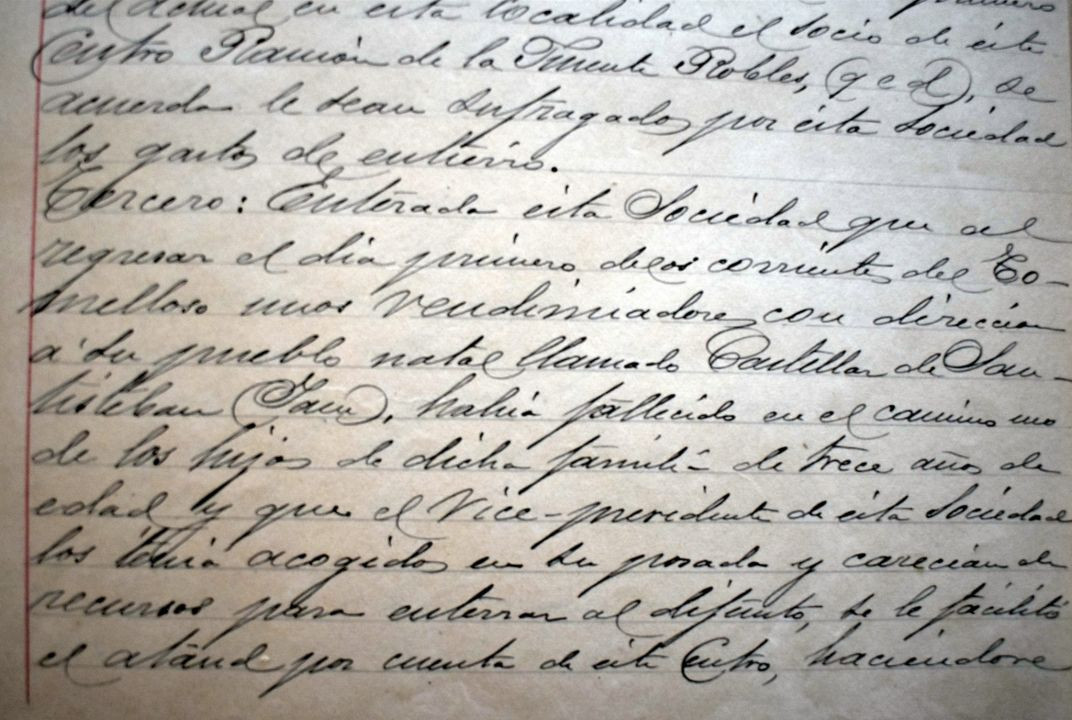 del actual en esta localidad el socio de este
Centro Ramón de la Fuente Robles, (q e d), se
acuerda le sean sufragados por esta sociedad
los gastos de entierro.
Tercero: Enterada esta Sociedad que al
regresar el dia primero de los corrientes del To-
melloso unos vendimiadores con direccion
a su pueblo natal llamado Castellar de San-
tisteban (Jaen), habia fallecido en el camino uno
de los hijos de dicha familia de trece años de
edad y que el Vice-presidente de esta Sociedad
los tenia acogidos en su posada y carecian de
recursos para enterrar al difunto, se le facilitó
el ataud por cuenta de este Centro, haciendose